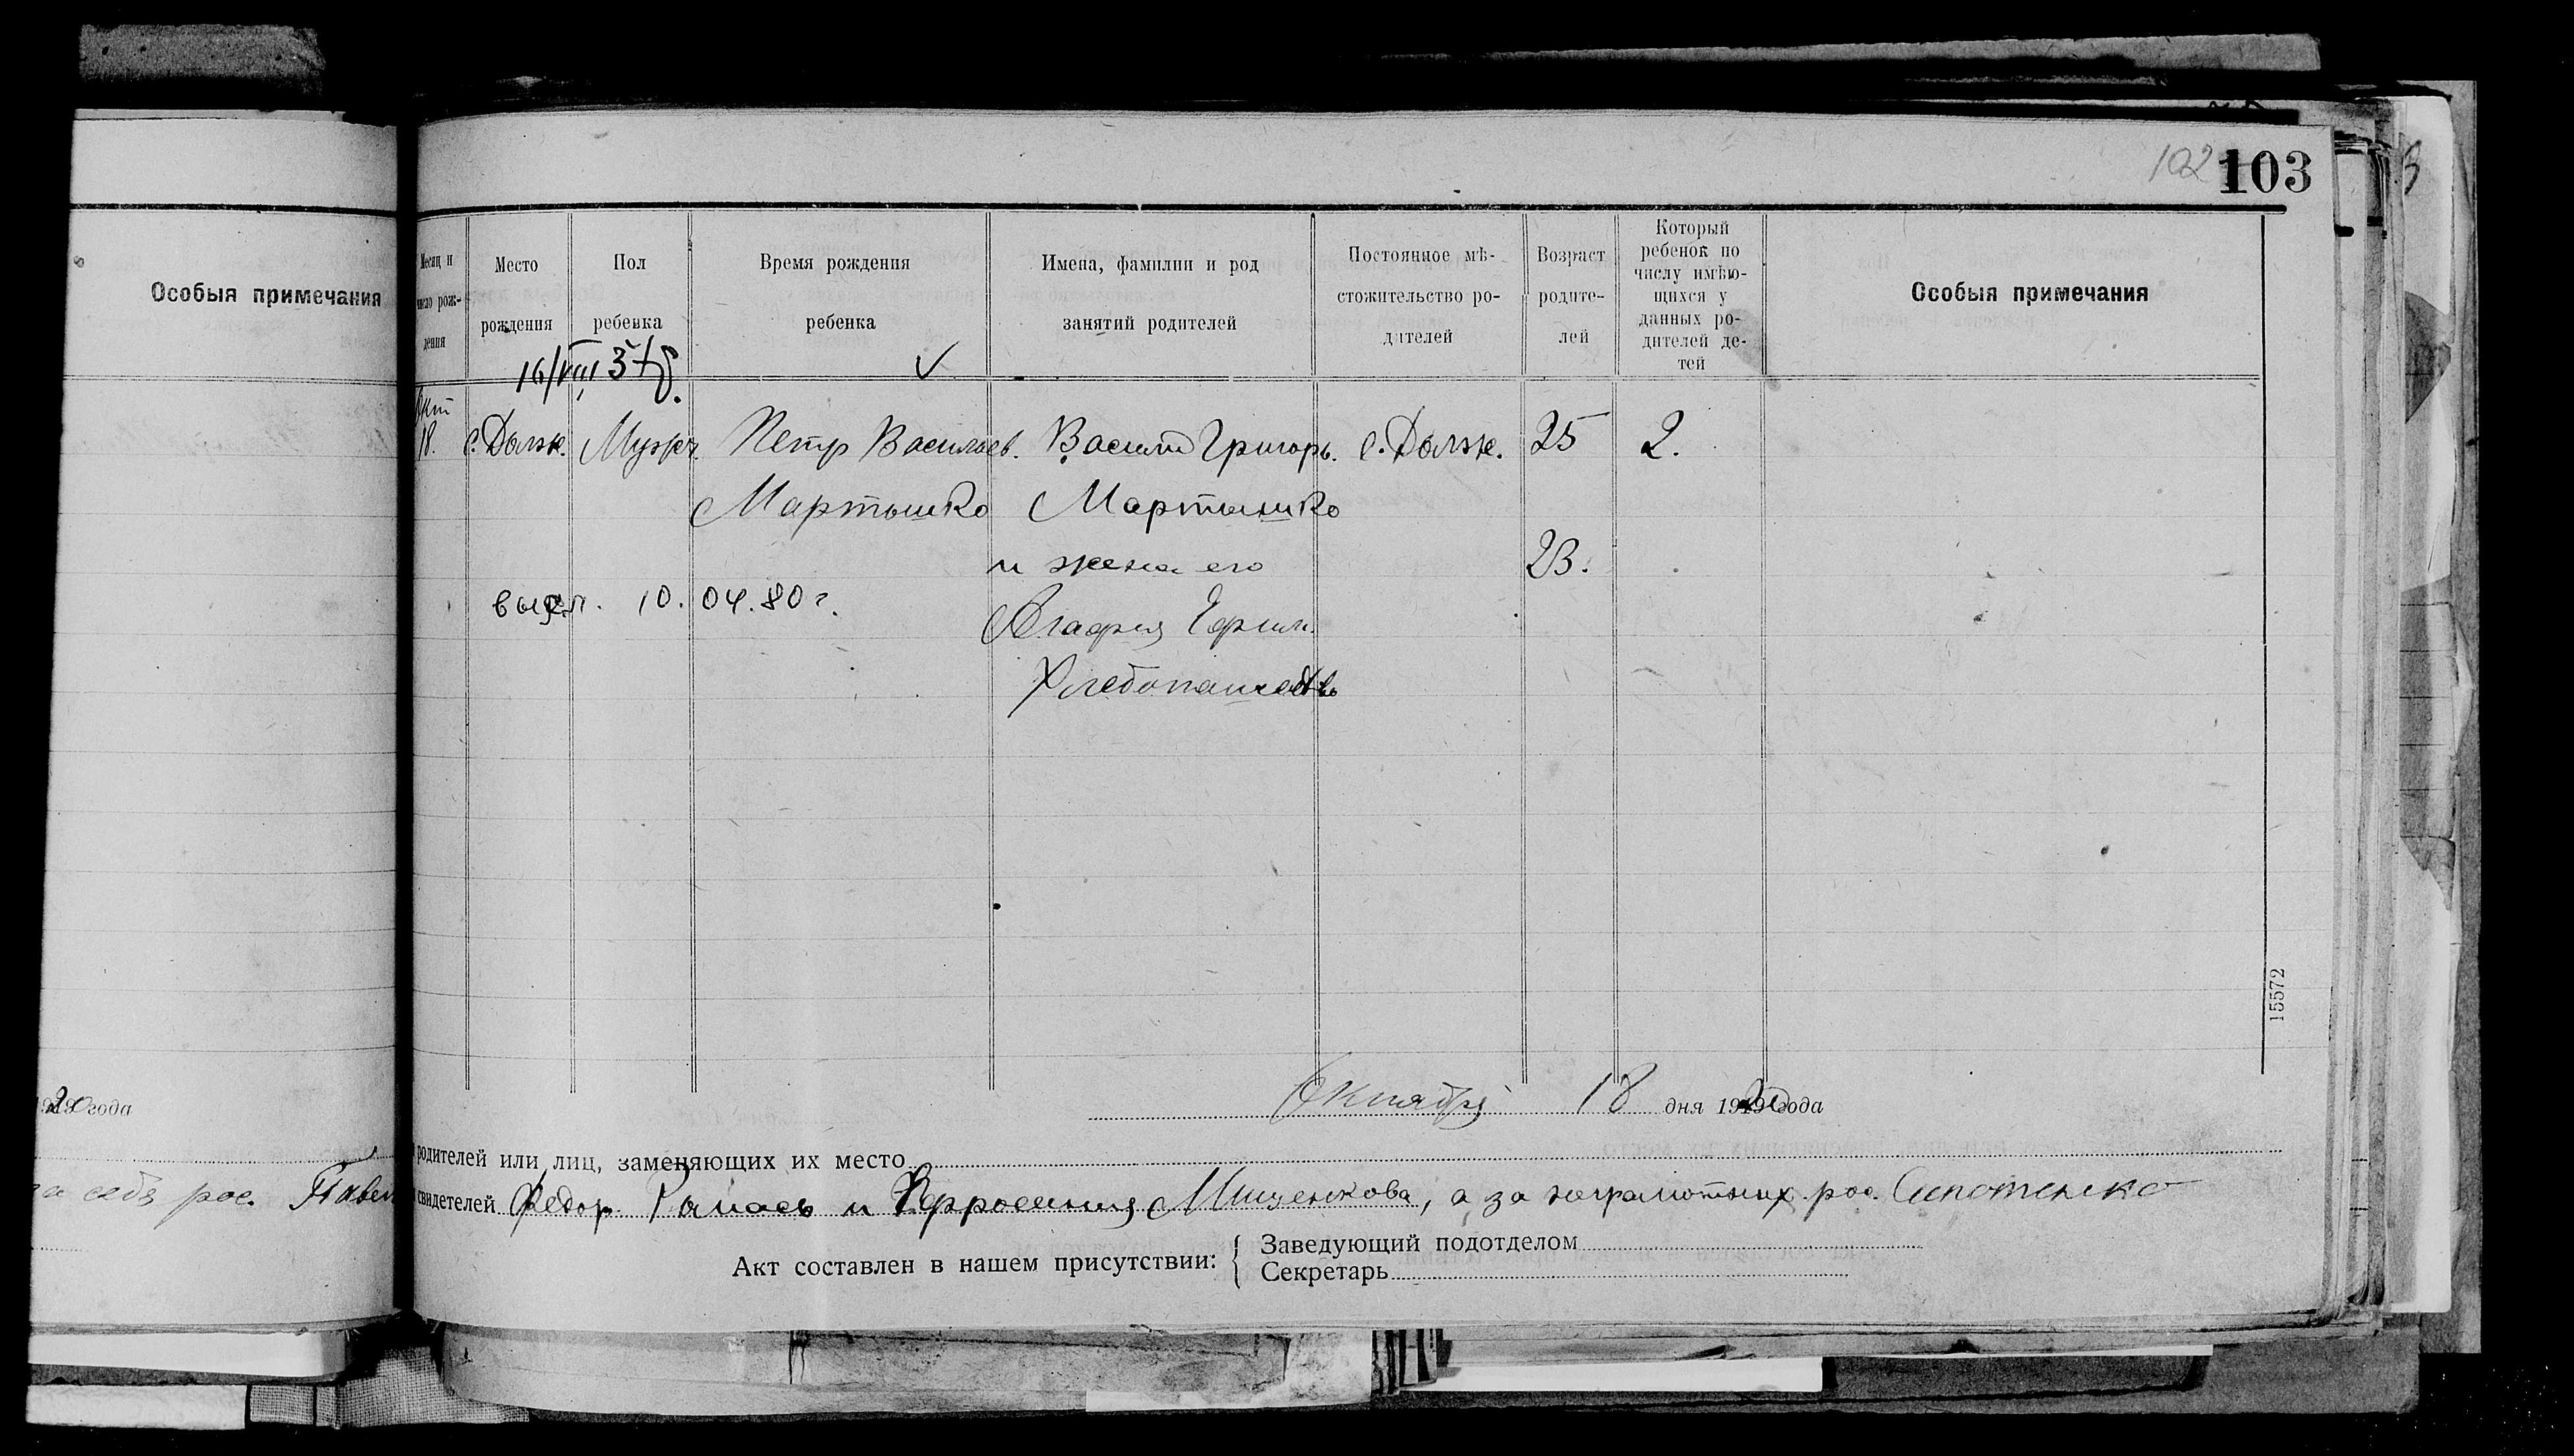 102 103
Особыя примечания
Месяц и число рождения
Место рождения
Пол ребенка
Время рождения ребенка
Имена, фамилии и род занятий родителей
Постоянное мѣстожительство родителей
Возраст родителей
Который ребенок по числу имѣющихся у данных родителей детей
Особыя примечания
16/VIII 57
Окт 18. с. Должк. Мужч. Петр Васильев. Василий Григорь. с. Должк. 25 2.
Мартышко Мартышко
и жена его 23.
выдел. 10.04.80 г.
Агафия Ефим.
Хлебопашество
15572
года
Октября 18 дня 1920 года
родителей или лиц, заменяющих их место
за себя рос. Павел
свидетелей Федор и Мищенкова, а за неграмотных рос.
Акт составлен в нашем присутствии:
Заведующий подотделом
Секретарь